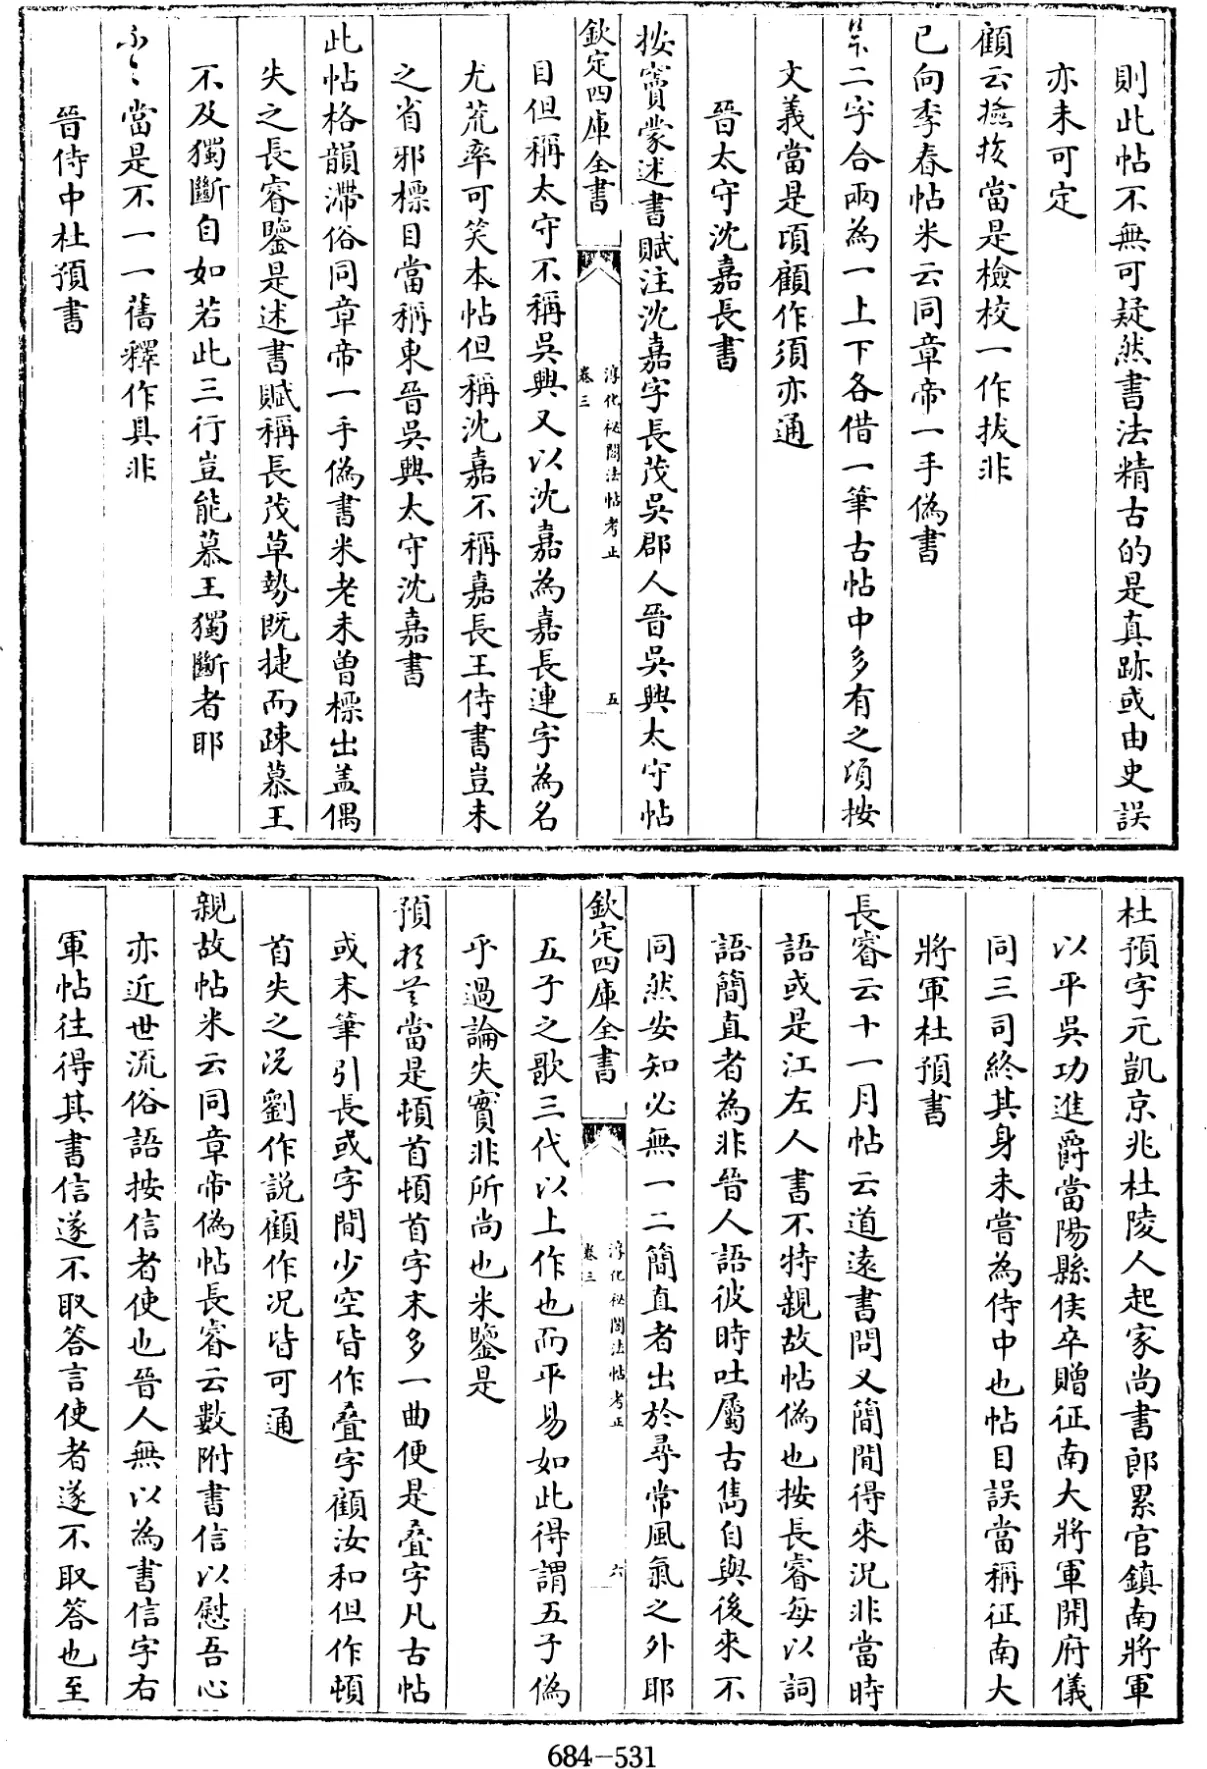 則此帖不無可疑然書法精古的是真跡或由史誤
亦未可定
顧云撿挍當是檢校一作拔非
已向季春帖米云同章帝一手偽書
二字合兩為一上下各借一筆古帖中多有之項按
文義當是項顧作須亦通
晉太守沈嘉長書
按竇蒙述書賦注沈嘉字長茂吳郡人晉吳興太守帖
欽定四庫全書
淳化秘閣法帖考正
卷三
五
目但稱太守不稱吳興又以沈嘉為嘉長連字為名
尤荒率可笑本帖但稱沈嘉不稱嘉長王侍書豈未
之省邪標目當稱東晉吳興太守沈嘉書
此帖格韻滯俗同章帝一手偽書米老未曾標出盖偶
失之長睿鑒是述書賦稱長茂草勢既捷而疎慕王
不及獨斷自如若此三行豈能慕王獨斷者耶
當是不一一舊釋作具非
晉侍中杜預書
杜預字元凱京兆杜陵人起家尚書郎累官鎮南將軍
以平吳功進爵當陽縣侯卒贈征南大將軍開府儀
同三司終其身未嘗為侍中也帖目誤當稱征南大
將軍杜預書
長睿云十一月帖云道遠書問又簡間得來況非當時
語或是江左人書不特親故帖偽也按長睿每以詞
語簡直者為非晉人語彼時吐屬古雋自與後來不
同然安知必無一二簡直者出於尋常風氣之外耶
欽定四庫全書
淳化秘閣法帖考正
卷三
六
五子之歌三代以上作也而平易如此得謂五子偽
乎過論失實非所尚也米鑒是
預當是頓首頓首字末多一曲便是叠字凡古帖
或末筆引長或字間少空皆作叠字顧汝和但作頓
首失之況劉作説顧作況皆可通
親故帖米云同章帝偽帖長睿云數附書信以慰吾心
亦近世流俗語按信者使也晉人無以為書信字右
軍帖往得其書信遂不取答言使者遂不取答也至
684-531